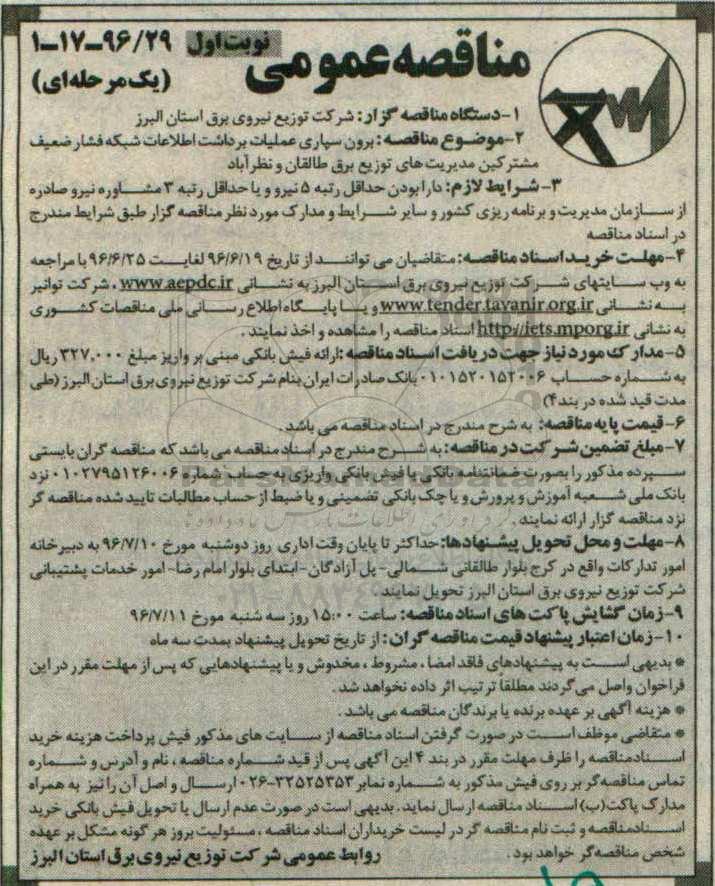 مناقصه عمومی
نوبت اول
۹۶/۲۹-۱۷-۱
(یک مرحله‌ای)
۱- دستگاه مناقصه گزار: شرکت توزیع نیروی برق استان البرز
۲- موضوع مناقصه: برون سپاری عملیات برداشت اطلاعات شبکه فشار ضعیف
مشترکین مدیریت های توزیع برق طالقان و نظرآباد
۳- شرایط لازم: دارا بودن حداقل رتبه ۵ نیرو و یا حداقل رتبه ۳ مشاوره نیرو صادره
از سازمان مدیریت و برنامه ریزی کشور و سایر شرایط و مدارک مورد نظر مناقصه گزار طبق شرایط مندرج
در اسناد مناقصه
۴- مهلت خرید اسناد مناقصه: متقاضیان می توانند از تاریخ ۹۶/۶/۱۹ لغایت ۹۶/۶/۲۵ با مراجعه
به وب سایتهای شرکت توزیع نیروی برق استان البرز به نشانی www.aepdc.ir ، شرکت توانیر
به نشانی www.tender.tavanir.org.ir و یا پایگاه اطلاع رسانی ملی مناقصات کشوری
به نشانی http://iets.mporg.ir اسناد مناقصه را مشاهده و اخذ نمایند .
۵- مدارک مورد نیاز جهت دریافت اسناد مناقصه: ارائه فیش بانکی مبنی بر واریز مبلغ ۳۲۷,۰۰۰ ریال
به شماره حساب ۰۱۰۱۵۲۰۱۵۲۰۰۶ بانک صادرات ایران بنام شرکت توزیع نیروی برق استان البرز (طی
مدت قید شده در بند۴)
۶- قیمت پایه مناقصه: به شرح مندرج در اسناد مناقصه می باشد .
۷- مبلغ تضمین شرکت در مناقصه: به شرح مندرج در اسناد مناقصه می باشد که مناقصه گران بایستی
سپرده مذکور را بصورت ضمانتنامه بانکی یا فیش بانکی واریزی به حساب شماره ۰۱۰۲۷۹۵۱۲۶۰۰۶ نزد
بانک ملی شعبه آموزش و پرورش و یا چک بانکی تضمینی و یا ضبط از حساب مطالبات تایید شده مناقصه گر
نزد مناقصه گزار ارائه نمایند .
۸- مهلت و محل تحویل پیشنهادها: حداکثر تا پایان وقت اداری روز دوشنبه مورخ ۹۶/۷/۱۰ به دبیرخانه
امور تدارکات واقع در کرج بلوار طالقانی شمالی- پل آزادگان- ابتدای بلوار امام رضا- امور خدمات پشتیبانی
شرکت توزیع نیروی برق استان البرز تحویل نمایند .
۹- زمان گشایش پاکت های اسناد مناقصه: ساعت ۱۵:۰۰ روز سه شنبه مورخ ۹۶/۷/۱۱
۱۰- زمان اعتبار پیشنهاد قیمت مناقصه گران: از تاریخ تحویل پیشنهاد بمدت سه ماه
* بدیهی است به پیشنهادهای فاقد امضا ، مشروط ، مخدوش و یا پیشنهادهایی که پس از مهلت مقرر در این
فراخوان واصل می گردند مطلقاً ترتیب اثر داده نخواهد شد .
* هزینه آگهی بر عهده برنده یا برندگان مناقصه می باشد .
* متقاضی موظف است در صورت گرفتن اسناد مناقصه از سایت های مذکور فیش پرداخت هزینه خرید
اسناد مناقصه را ظرف مهلت مقرر در بند ۴ این آگهی پس از قید شماره مناقصه ، نام و آدرس و شماره
تماس مناقصه گر بر روی فیش مذکور به شماره نمابر ۳۲۵۲۵۳۵۳-۰۲۶ ارسال و اصل آن را نیز به همراه
مدارک پاکت (ب) اسناد مناقصه ارسال نماید. بدیهی است در صورت عدم ارسال یا تحویل فیش بانکی خرید
اسناد مناقصه و ثبت نام مناقصه گر در لیست خریداران اسناد مناقصه ، مسئولیت بروز هر گونه مشکل بر عهده
شخص مناقصه گر خواهد بود .
روابط عمومی شرکت توزیع نیروی برق استان البرز